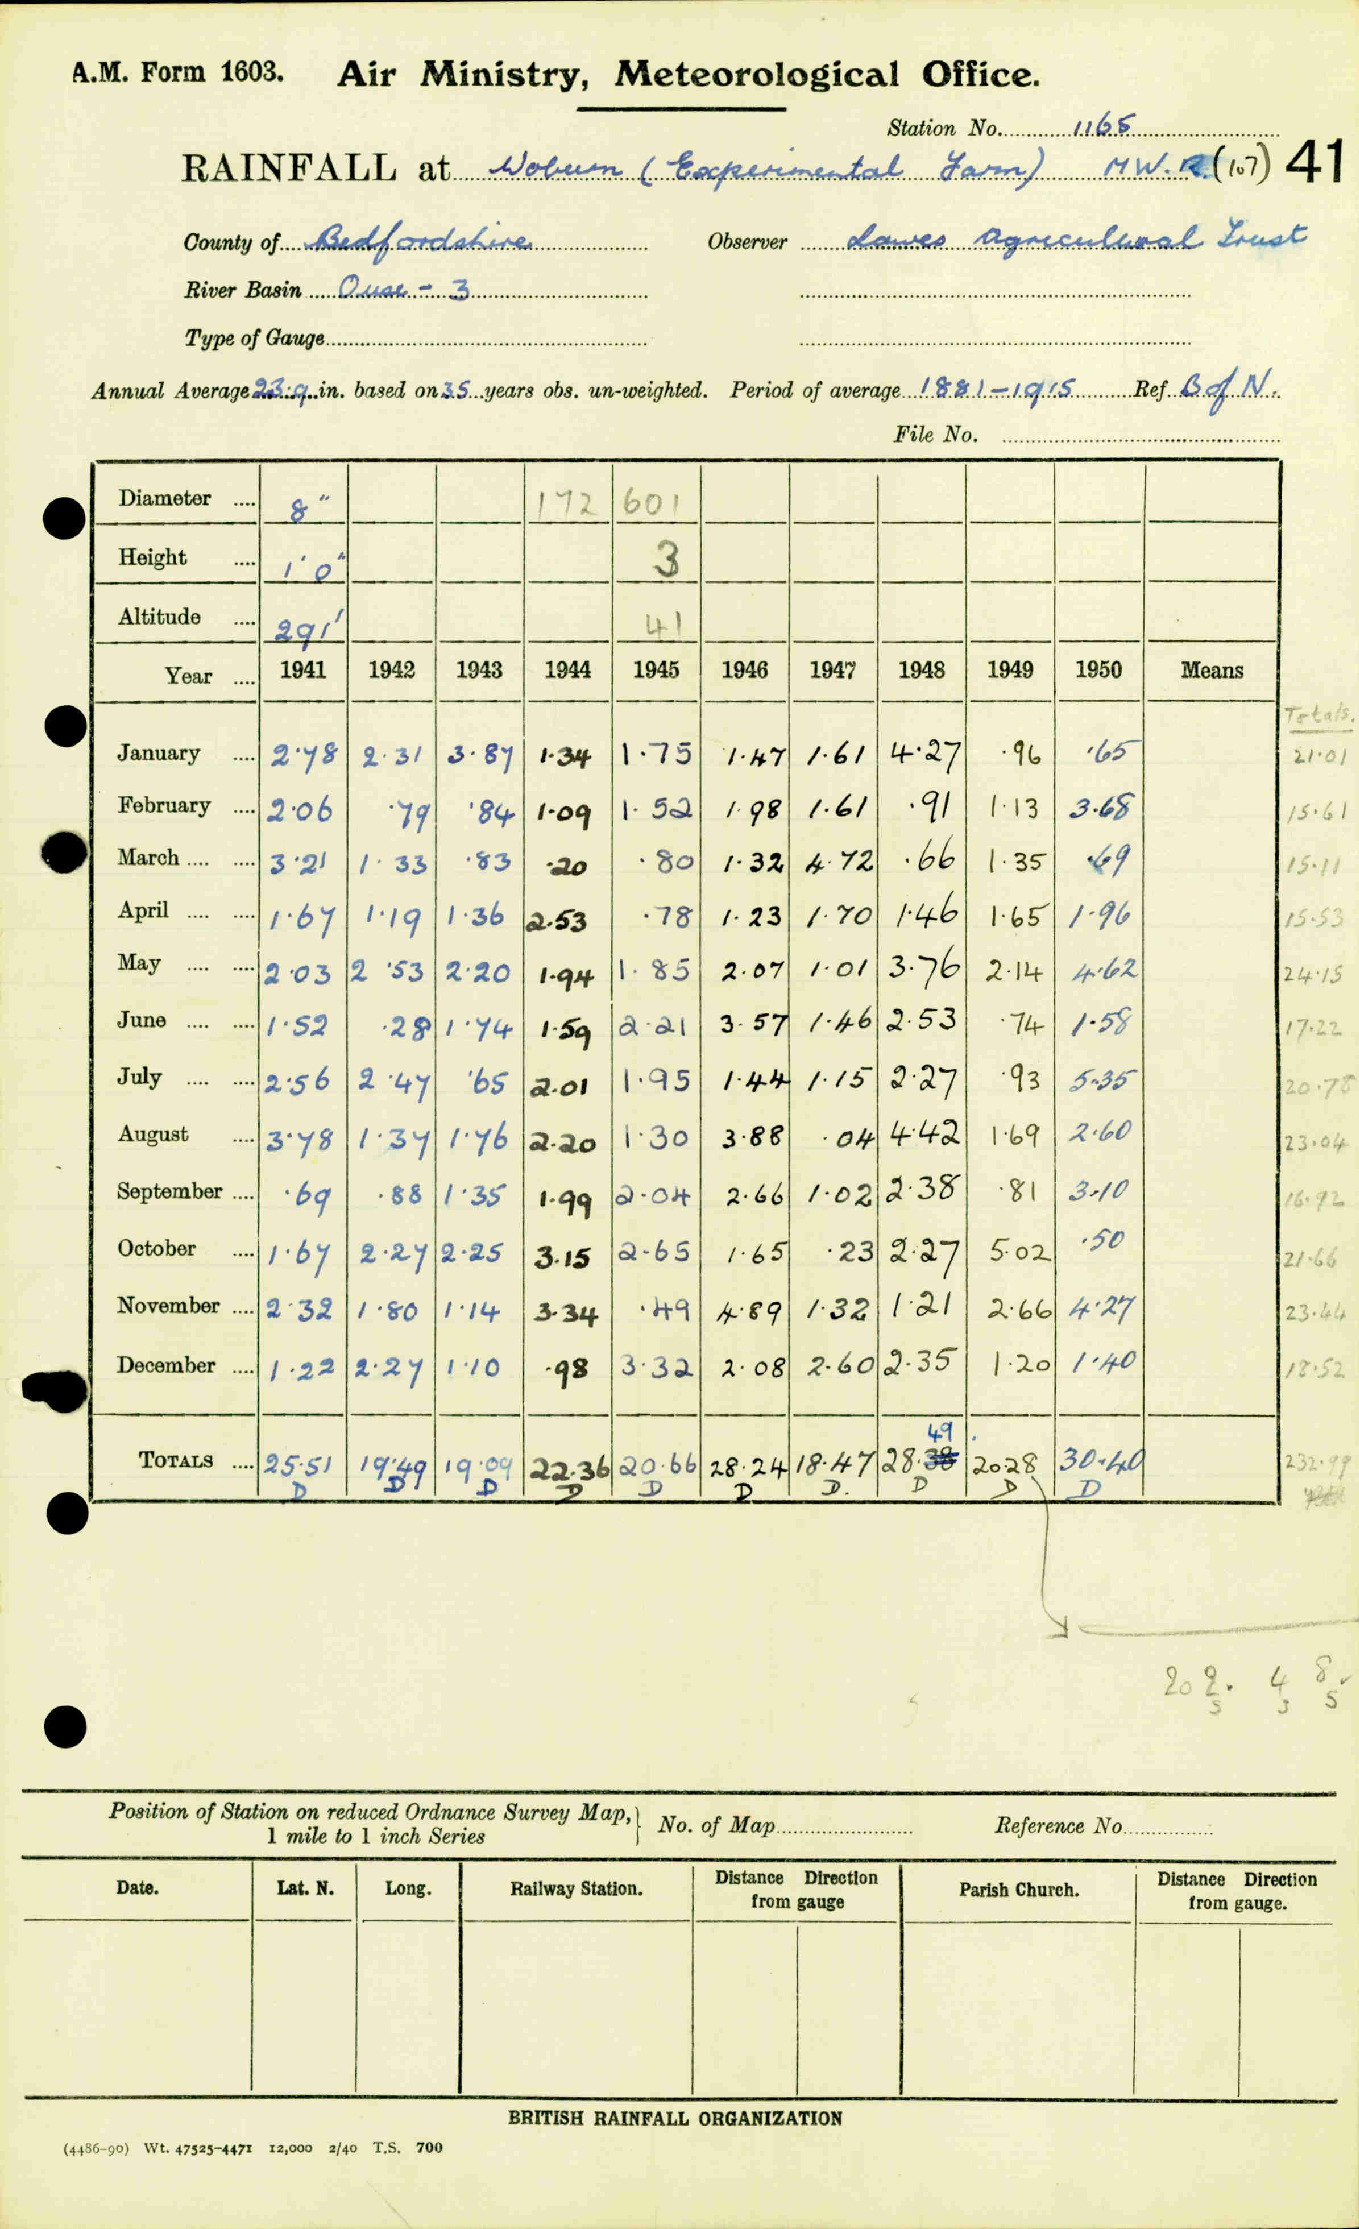 A.M. Form 1603. Air Ministry, Meteorological Office.
Station No. 1165
RAINFALL at Woburn (Experimental Farm) M.W.R. (107) 41
County of Bedfordshire Observer Lawes Agricultural Trust
River Basin Ouse - 3
Type of Gauge
Annual Average 23.9 in. based on 35 years obs. un-weighted. Period of average 1881-1915 Ref. B of N.
File No.
Diameter .... 8" 172 601
Height .... 1'0" 3
Altitude .... 291' 41
Year .... 1941 1942 1943 1944 1945 1946 1947 1948 1949 1950 Means
Totals.
January .... 2.78 2.31 3.87 1.34 1.75 1.47 1.61 4.27 .96 .65 21.01
February .... 2.06 .79 .84 1.09 1.52 1.98 1.61 .91 1.13 3.68 15.61
March .... .... 3.21 1.33 .83 .20 .80 1.32 4.72 .66 1.35 .69 15.11
April .... .... 1.67 1.19 1.36 2.53 .78 1.23 1.70 1.46 1.65 1.96 15.53
May .... .... 2.03 2.53 2.20 1.94 1.85 2.07 1.01 3.76 2.14 4.62 24.15
June .... .... 1.52 .28 1.74 1.59 2.21 3.57 1.46 2.53 .74 1.58 17.22
July .... .... 2.56 2.47 .65 2.01 1.95 1.44 1.15 2.27 .93 5.35 20.78
August .... 3.78 1.37 1.76 2.20 1.30 3.88 .04 4.42 1.69 2.60 23.04
September .... .69 .88 1.35 1.99 2.04 2.66 1.02 2.38 .81 3.10 16.92
October .... 1.67 2.27 2.25 3.15 2.65 1.65 .23 2.27 5.02 .50 21.66
November .... 2.32 1.80 1.14 3.34 .49 4.89 1.32 1.21 2.66 4.27 23.44
December .... 1.22 2.27 1.10 .98 3.32 2.08 2.60 2.35 1.20 1.40 18.52
49
TOTALS .... 25.51 19.49 19.09 22.36 20.66 28.24 18.47 28.38 20.28 30.40 232.99
D D D D D D D. D D D
202. 4 8.
5 3 5
Position of Station on reduced Ordnance Survey Map,
1 mile to 1 inch Series } No. of Map Reference No.
Date. Lat. N. Long. Railway Station. Distance Direction from gauge Parish Church. Distance Direction from gauge.
BRITISH RAINFALL ORGANIZATION
(4486-90) Wt. 47525-4471 12,000 2/40 T.S. 700